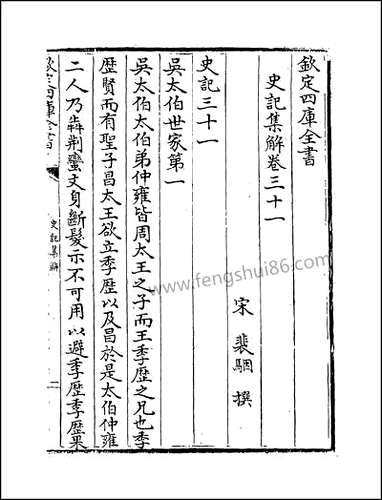 欽定四庫全書
史記集解卷三十一
宋 裴駰 撰
史記三十一
吳太伯世家第一
吳太伯太伯弟仲雍皆周太王之子而王季歷之兄也季
歷賢而有聖子昌太王欲立季歷以及昌於是太伯仲雍
二人乃犇荆蠻文身斷髮示不可用以避季歷季歷果
欽定四庫全書
史記集解
www.fengshui86.com